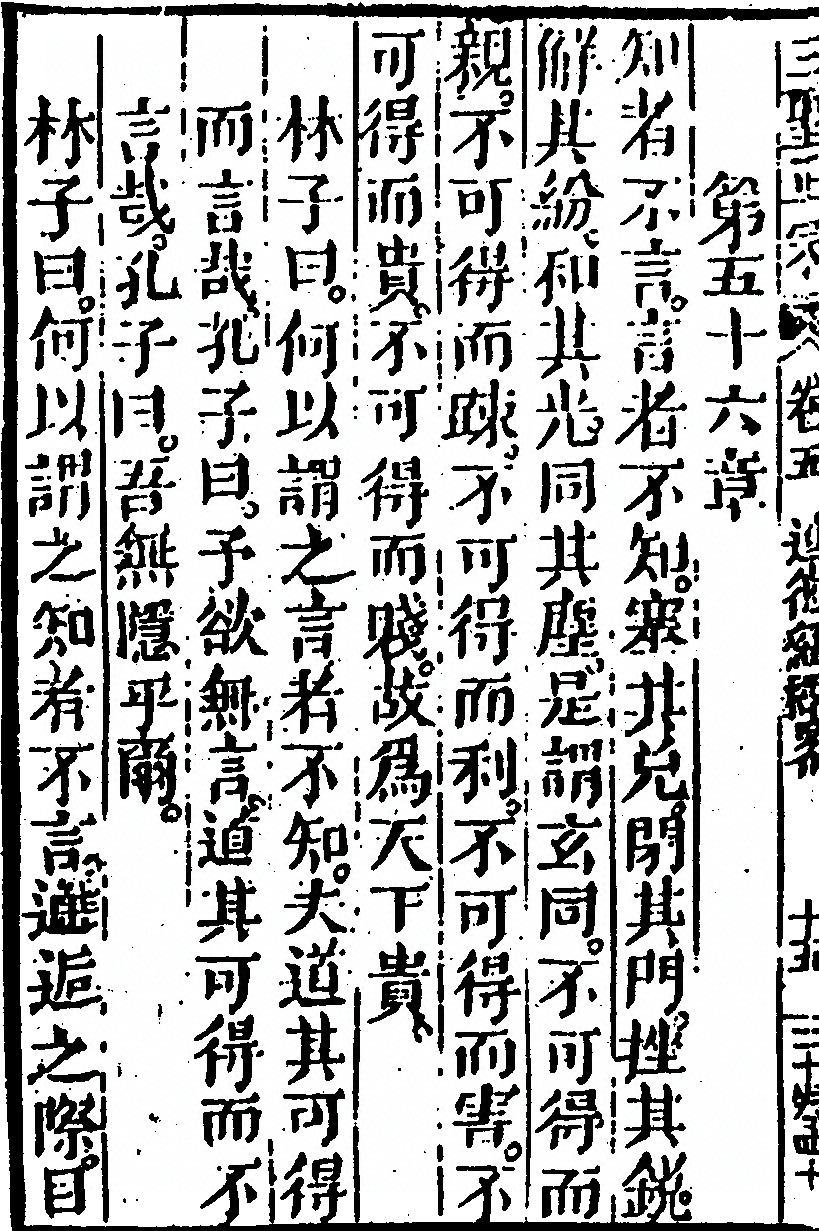 第五十六章
知者不言。言者不知。塞其兌、閉其門、挫其銳。
解其紛、和其光、同其塵、是謂玄同。不可得而
親。不可得而疎、不可得而利、不可得而害。不
可得而貴、不可得而賤。故為天下貴、
林子曰。何以謂之言者不知。夫道其可得
而言哉、孔子曰。予欲無言、道其可得而不
言哉。孔子曰。吾無隱乎爾。
林子曰。何以謂之知者不言、邂逅之際。目